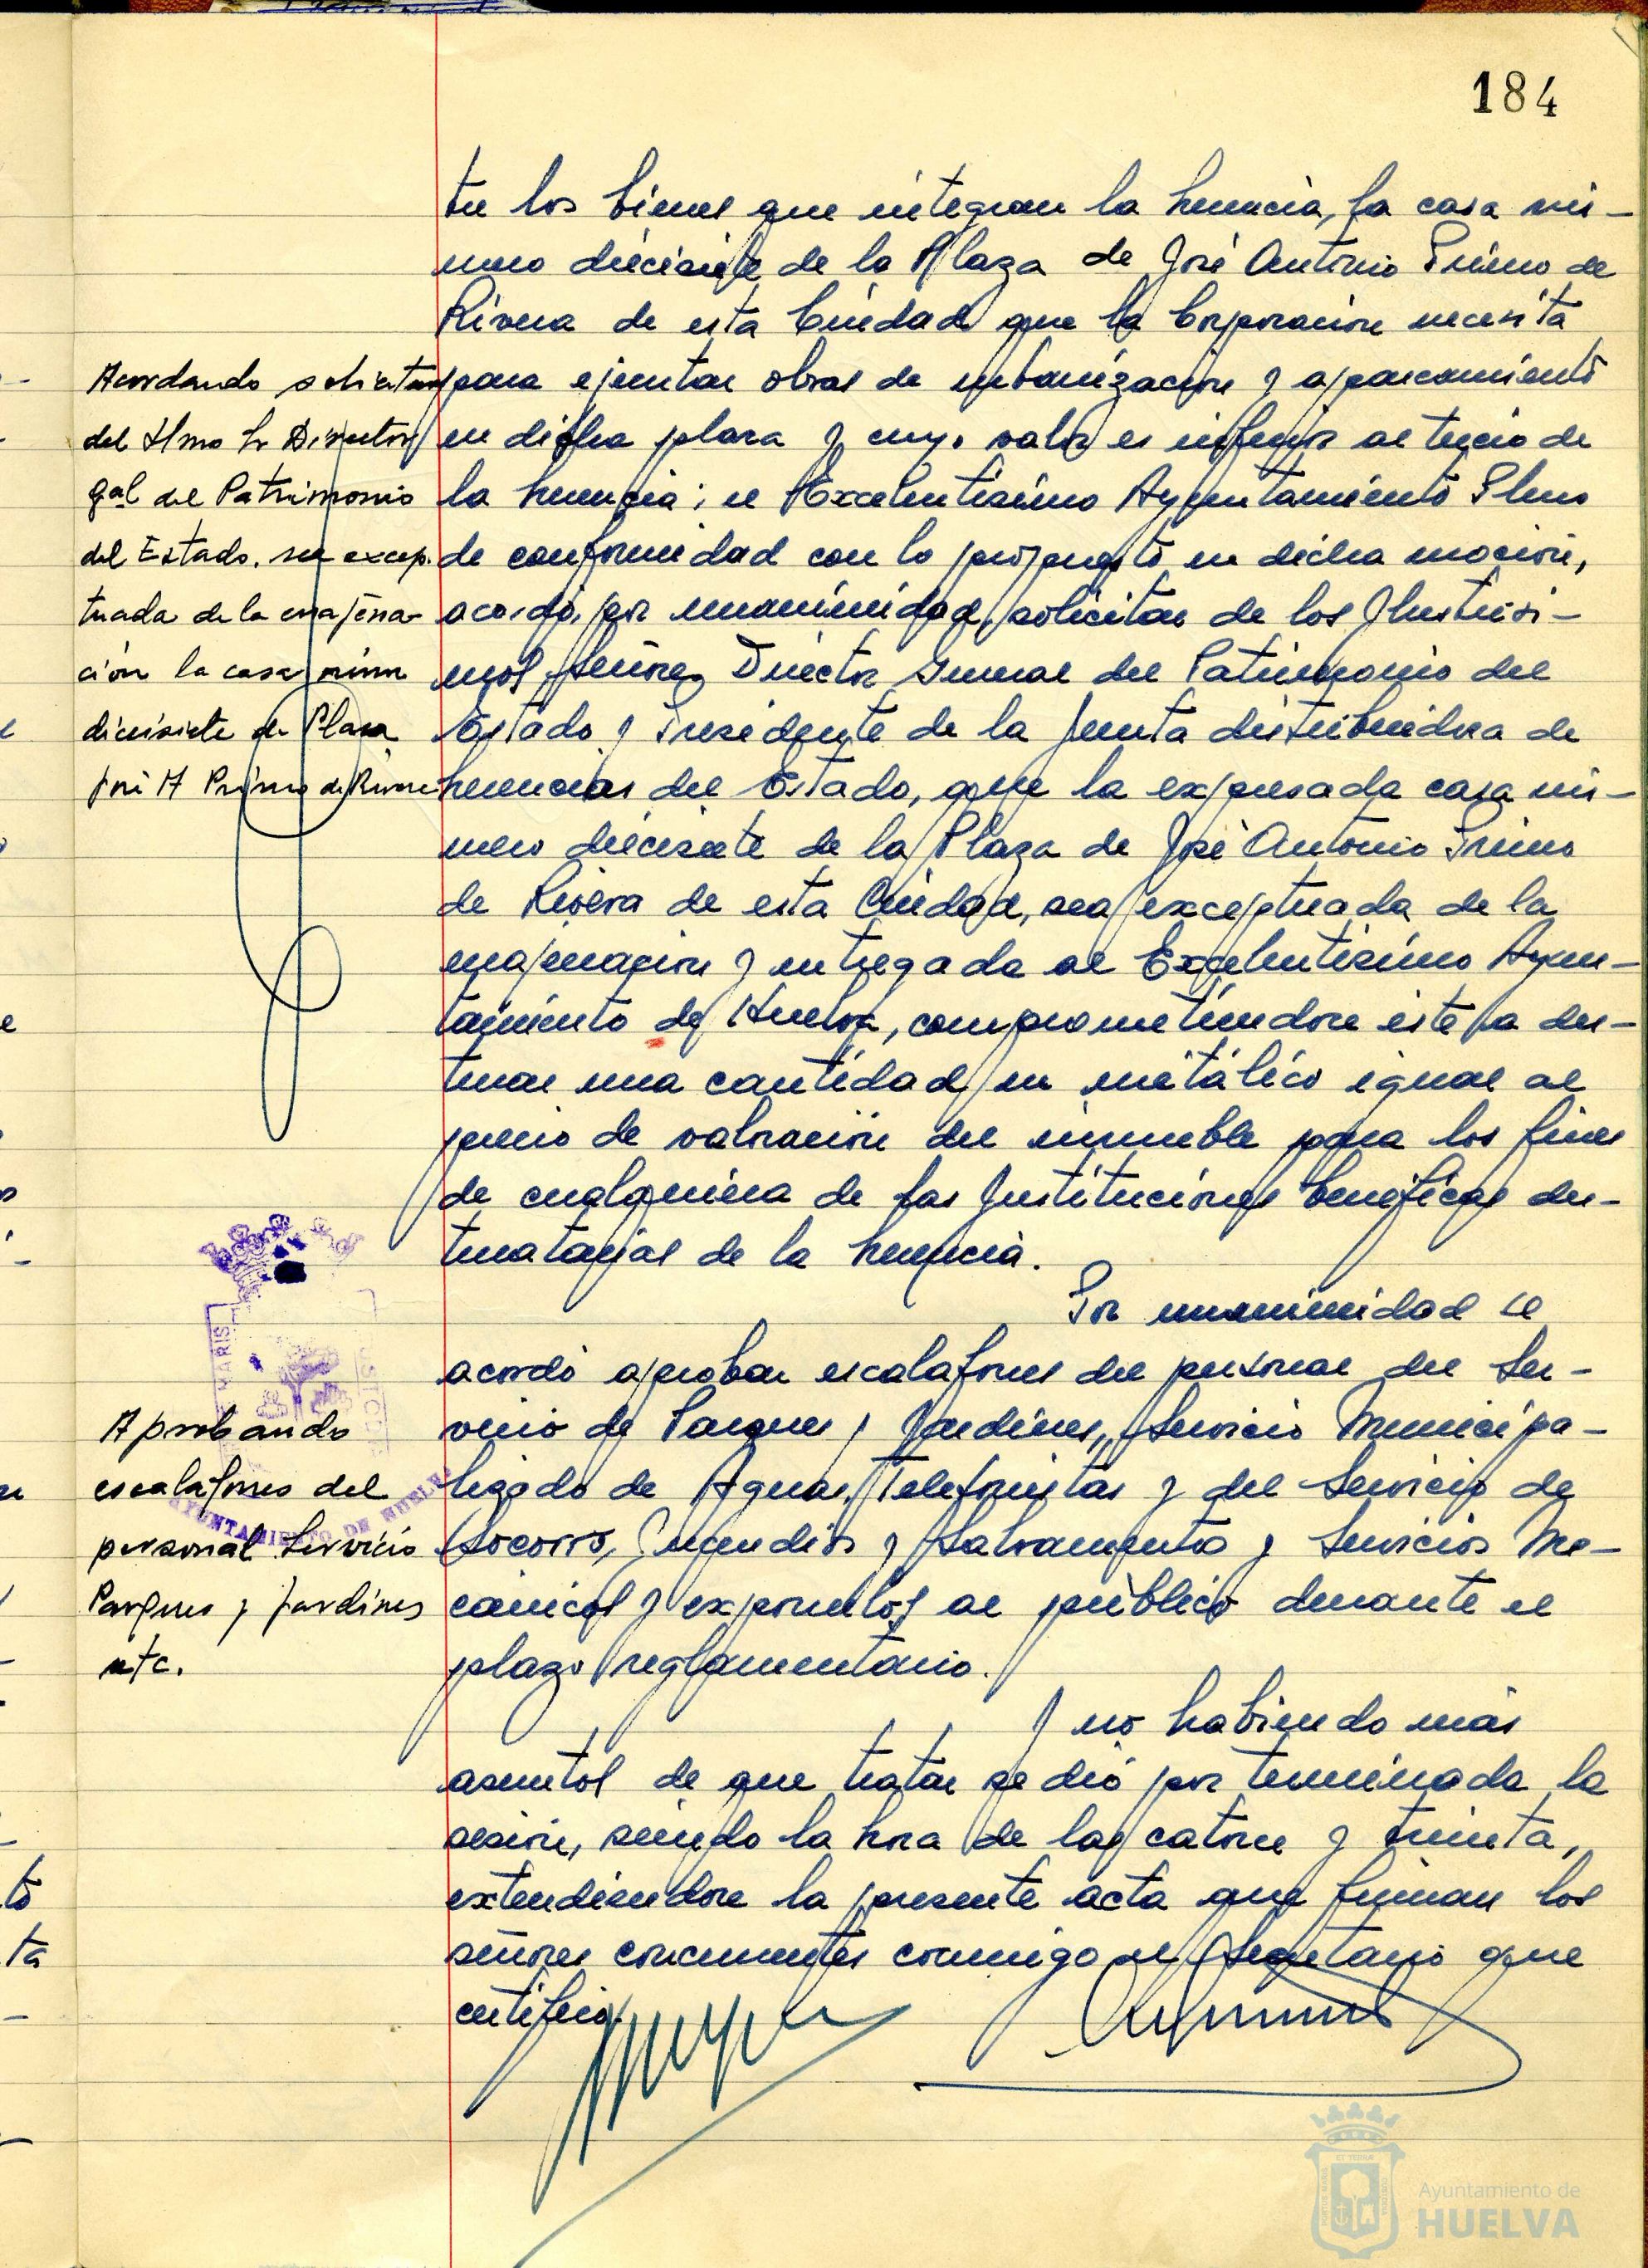 184
tre los bienes que integran la herencia, la casa nú-
mero diecisiete de la Plaza de José Antonio Primo de
Rivera de esta Ciudad que la Corporación necesita
para ejecutar obras de urbanización y aparcamiento
en dicha plaza y cuyo valor es inferior al tercio de
la herencia; el Excelentísimo Ayuntamiento Pleno
de conformidad con lo propuesto en dicha moción,
acordó, por unanimidad, solicitar de los Ilustrísi-
mos señores Director General del Patrimonio del
Estado y Presidente de la Junta distribuidora de
herencias del Estado, que la expresada casa nú-
mero diecisiete de la Plaza de José Antonio Primo
de Rivera de esta Ciudad, sea exceptuada de la
enajenación y entregada al Excelentísimo Ayun-
tamiento de Huelva, comprometiéndose éste a des-
tinar una cantidad en metálico igual al
precio de valoración del inmueble para los fines
de cualquiera de las Instituciones benéficas des-
tinatarias de la herencia.
Por unanimidad se
acordó aprobar escalafones del personal del Ser-
vicio de Parques y Jardines, Servicio Municipa-
lizado de Aguas, Telefonistas y del Servicio de
Socorro, Incendios y Salvamento y Servicios Me-
cánicos y exponerlos al público durante el
plazo reglamentario.
Y no habiendo más
asuntos de que tratar se dió por terminada la
sesión, siendo la hora de las catorce y treinta,
extendiéndose la presente acta que firman los
señores concurrentes conmigo el Secretario que
certifico.
Acordando solicitar
del Ilmo Sr Director
gal del Patrimonio
del Estado. sea excep-
tuada de la enajena-
ción la casa núm
diecisiete de Plaza
José A Primo de Rivera
Aprobando
escalafones del
personal Servicio
Parques y Jardines
etc.
MARIS
AYUNTAMIENTO DE HUELVA
Ayuntamiento de
HUELVA